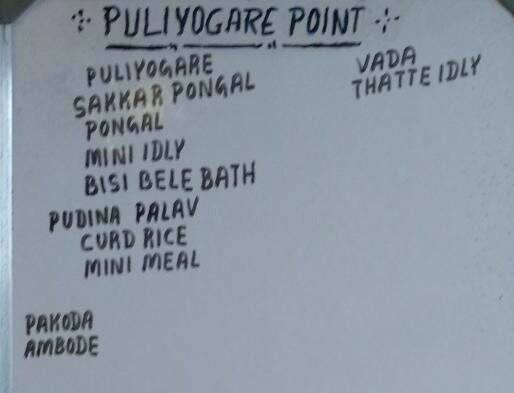 PULIYOGARE POINT
PULIYOGARE
SAKKAR PONGAL
PONGAL
MINI IDLY
BISI BELE BATH
PUDINA PALAV
CURD RICE
MINI MEAL
PAKODA
AMBODE
VADA
THATTE IDLY